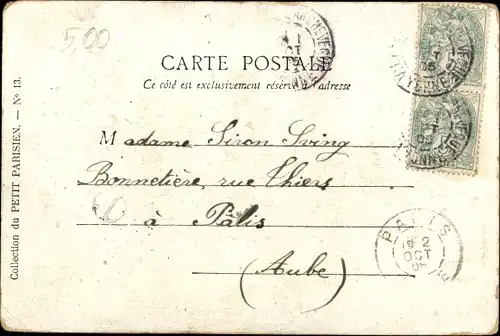 500
CARTE POSTALE
Ce côté est exclusivement réservé à l'adresse
Collection du PETIT PARISIEN. — No 13.
Madame Siron Sving
Bonnetière, rue Thiers
à Pâlis
(Aube)
PALIS
2
OCT
05